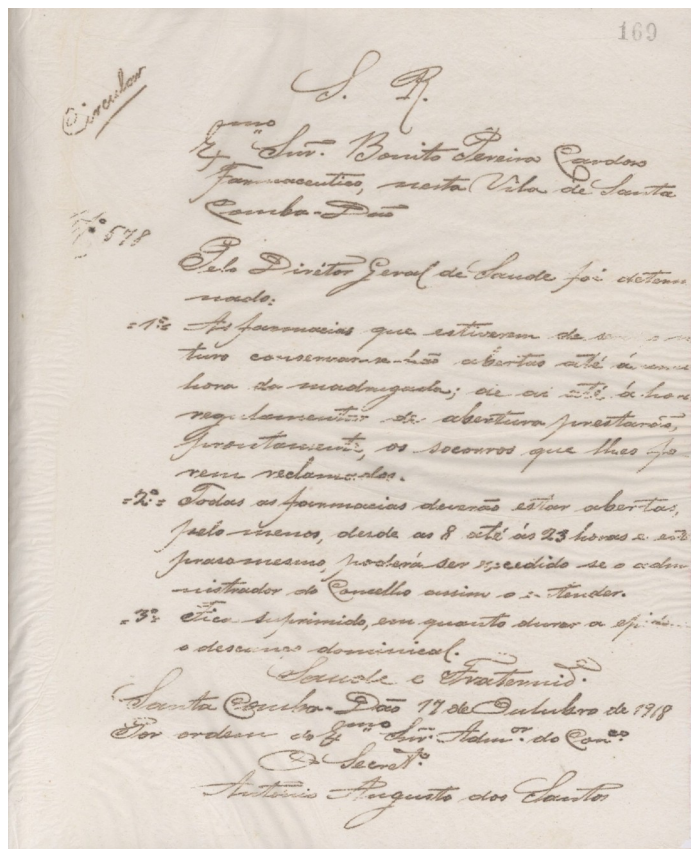 169
Circular
S. R.
Exmo Snr. Benito Pereira Cardoso
Farmaceutico, nesta Vila de Santa
Comba-Dão
Nº 578
Pelo Diretor Geral de Saude foi determi
nado:
=1º= As farmacias que estiverem de
turo conservar-se-hão abertas até á uma
hora da madrugada; de ai até á hora
regulamentar de abertura prestarão,
prontamente, os socorros que lhes fo
rem reclamados.
=2º= Todas as farmacias deverão estar abertas,
pelo menos, desde as 8 até ás 23 horas e este
praso mesmo, poderá ser excedido se o admi
nistrador do Concelho assim o entender.
=3º= Fica suprimido, em quanto durar a epi
o descanço dominical.
Saude e Fraternide.
Santa Comba-Dão 17 de Outubro de 1918
Por ordem do Exmo Snr. Admor. do Conco
O Secreto
Antonio Augusto dos Santos